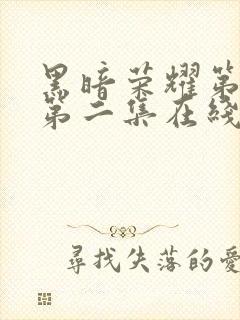 黑暗荣耀第
第二集在线
尋找失落的愛